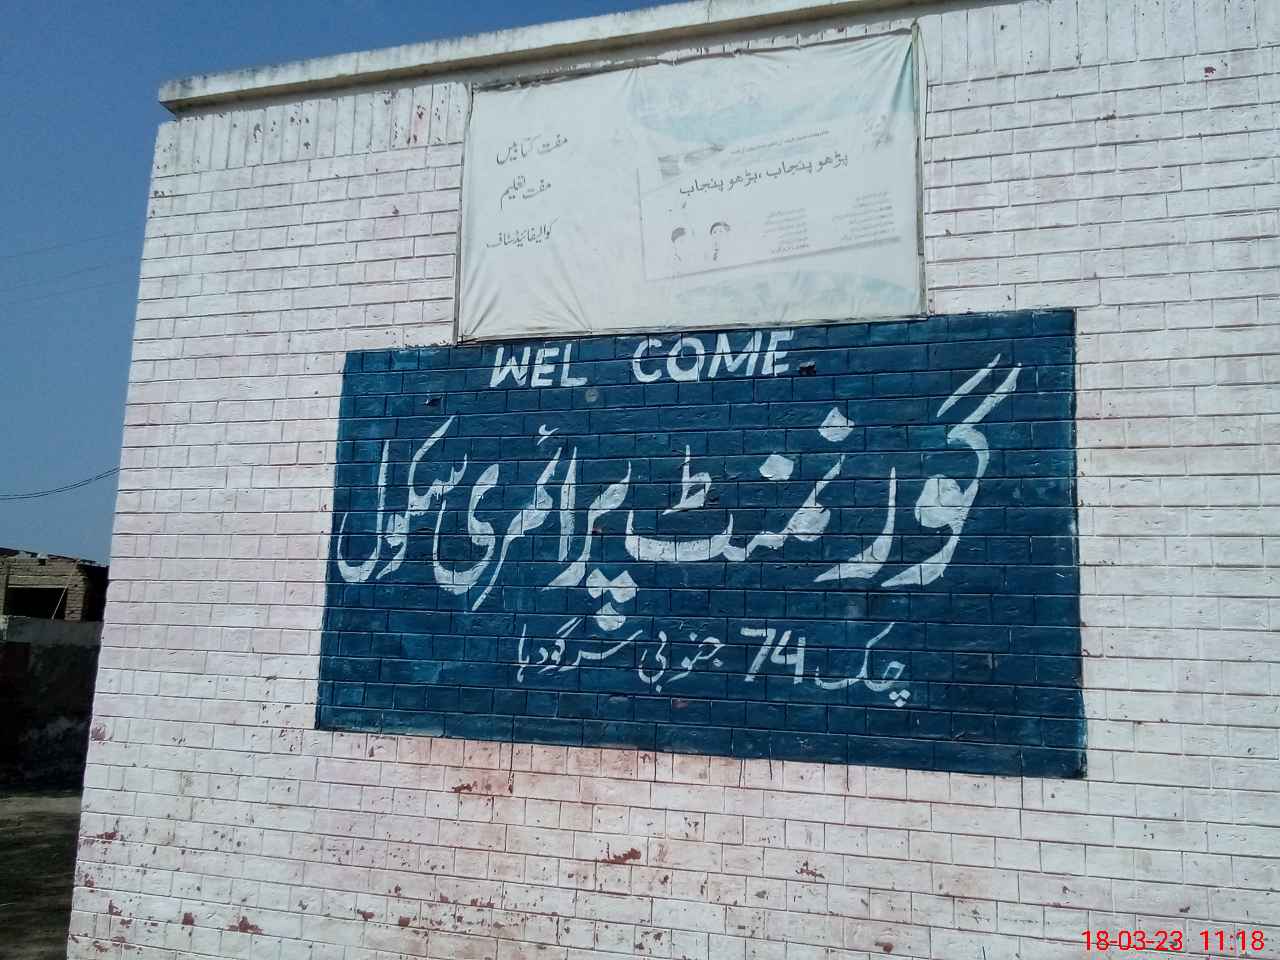 مفت کتابیں
مفت تعلیم
کوالیفائیڈ سٹاف
پڑھو پنجاب، بڑھو پنجاب
WEL COME
گورنمنٹ پرائمری سکول
چک 74 جنوبی سرگودہا
18-03-23 11:18